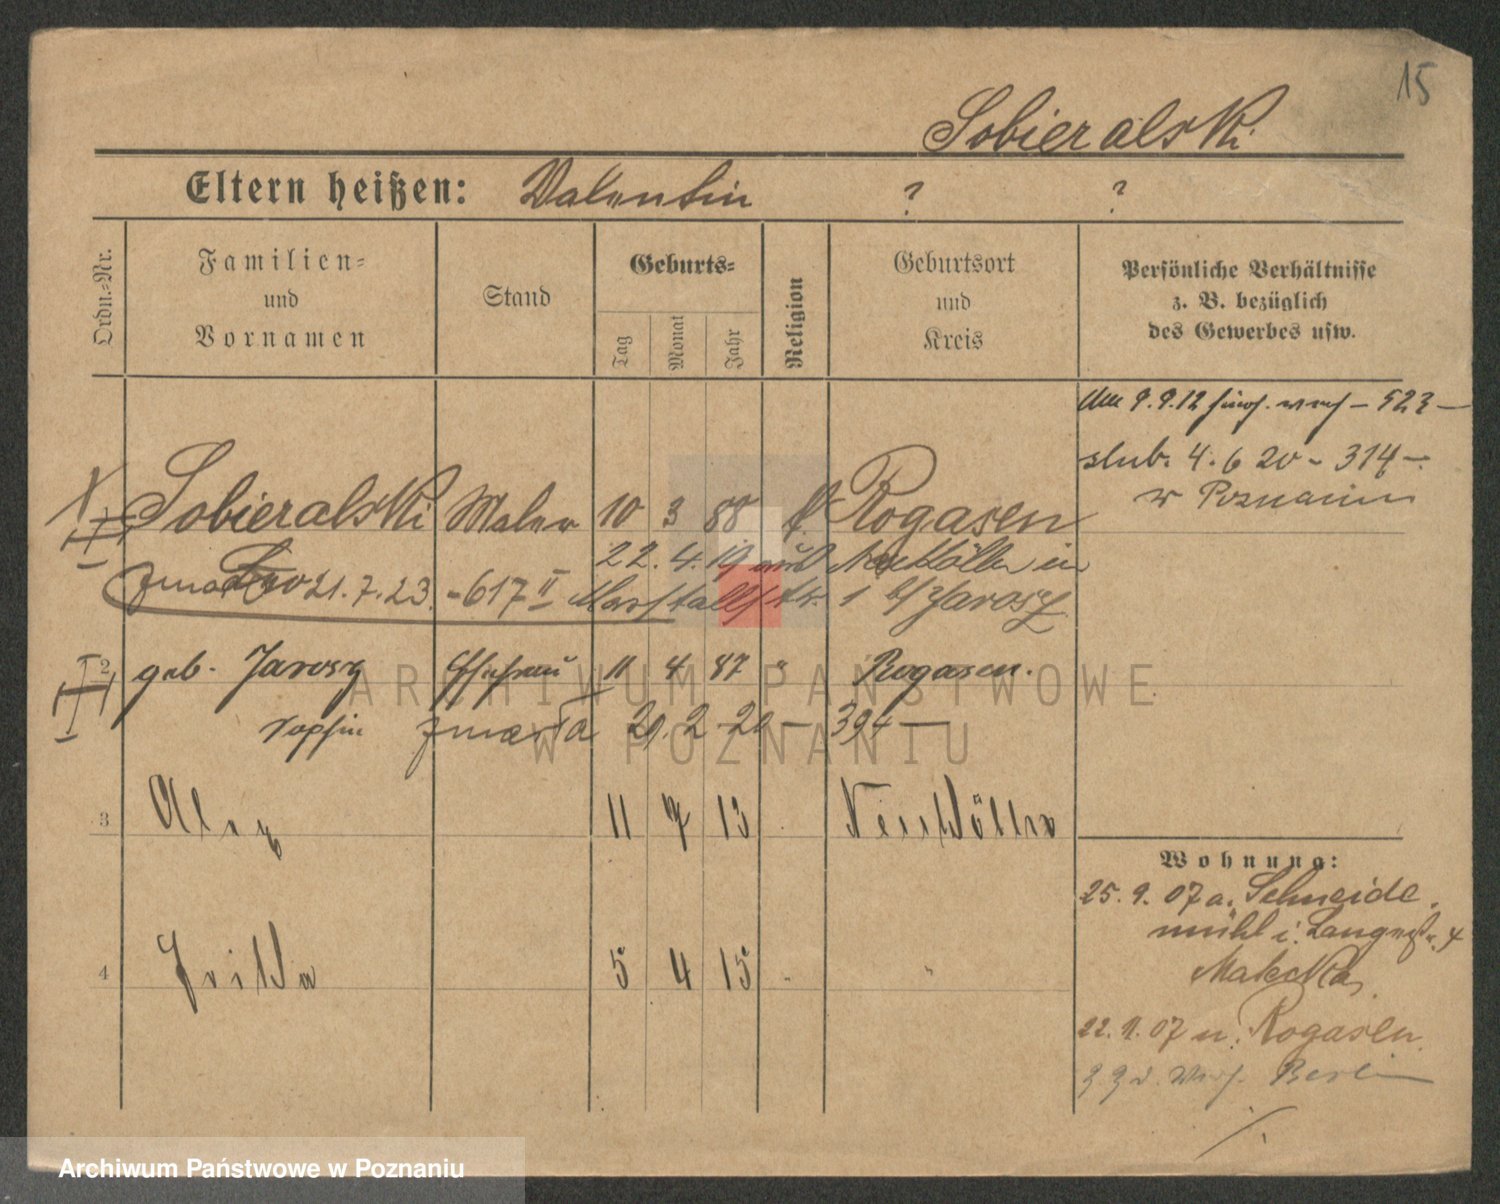 15
Sobieralski
Eltern heißen: Valentin ? ?
Ordn.-Nr.
Familien- und Vornamen
Stand
Geburts-
Tag
Monat
Jahr
Religion
Geburtsort und Kreis
Persönliche Verhältnisse
z. B. bezüglich
des Gewerbes usw.
9.9.12 – 523 –
slub. 4.6 20 – 314 –
w Poznaniu
Sobieralski Maler 10 3 88 k. Rogasen
22.4.19 aus Neukölln in
21.7.23. – 617 II Marstallstr. 1 b/ Jarosz
2 geb. Jarosz Ehefrau 11 4 87 " Rogasen.
Sophie zmarła 29.2 20 – 394 –
3 11 7 13 Neukölln
4 5 4 15 " "
Wohnung:
25.9.07 a. Schneide-
mühl i. Langestr. 4
22.11.07 n. Rogasen.
Berlin
ARCHIWUM PAŃSTWOWE
W POZNANIU
Archiwum Państwowe w Poznaniu